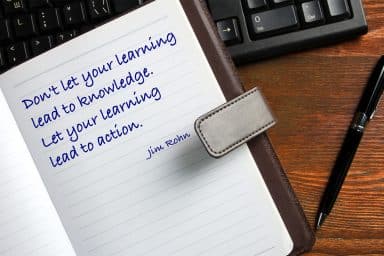 Don't let your learning
lead to knowledge.
Let your learning
lead to action.
Jim Rohn